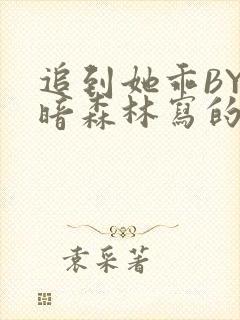 追到她乖BY
暗森林寫的
袁采著